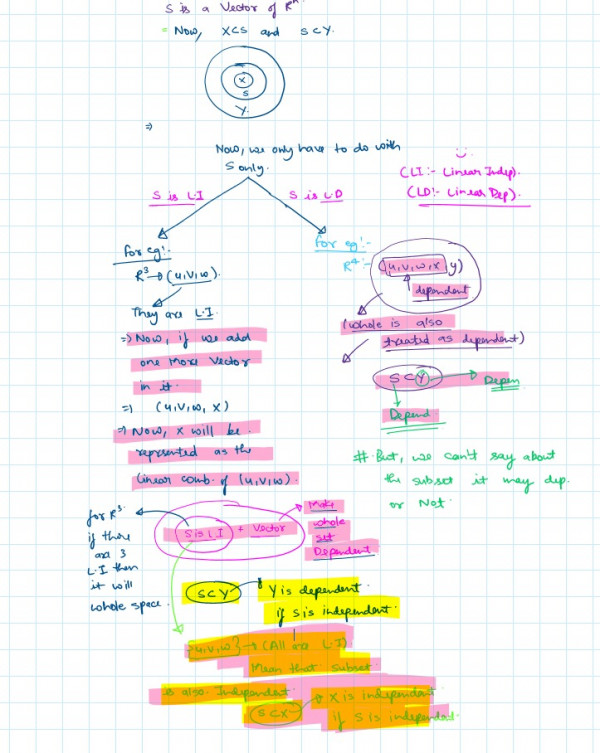 S is a Vector of Rⁿ.
Now, X⊂S and S⊂Y.
X
S
Y
⇒
Now, we only have to do with
S only.
S is L·I
S is L·D
(LI:- Linear Indep).
(LD:- Linear Dep).
for eg:-
R³→(u,v,w).
They are L.I.
⇒ Now, if we add
one more vector
in it.
⇒ (u,v,w,x)
⇒ Now, x will be
represented as the
linear comb. of (u,v,w).
for eg:-
R⁴:-
(u,v,w,x,y)
dependent
(whole is also
treated as dependent)
S⊂Y
Depen
Depend
# But, we can't say about
the subset it may dep.
or Not.
for R³
if there
are 3
L.I then
it will
whole space.
S is L I + Vector
Make
whole
set
Dependent
S⊂Y
Y is dependent
if S is independent.
{u,v,w} → (All are L.I)
Mean that subset
is also Independent.
S⊂X
X is independent
if S is independent.